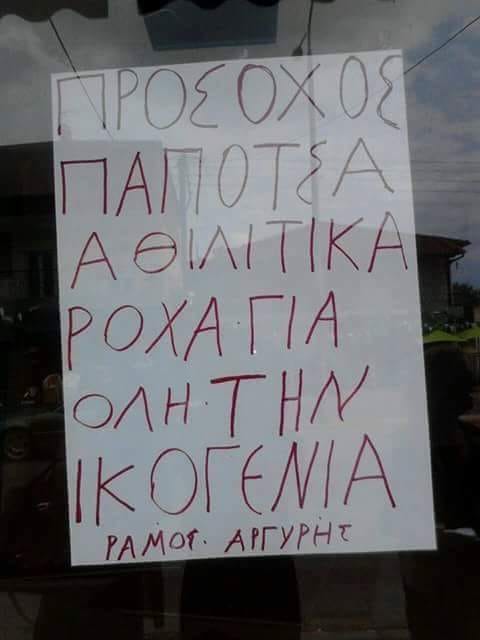 ΠΡΟΣΟΧΟΣ
ΠΑΠΟΤΣΑ
ΑΘΙΛΙΤΙΚΑ
ΡΟΧΑ·ΓΙΑ
ΟΛΗ·ΤΗΝ
ΙΚΟΓΕΝΙΑ
ΡΑΜΟΣ· ΑΡΓΥΡΗΣ